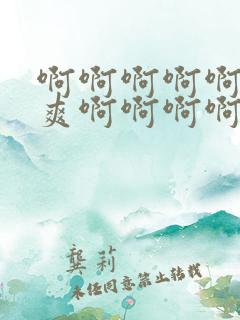 啊啊啊啊啊
爽啊啊啊啊
龚莉
未经同意禁止转载